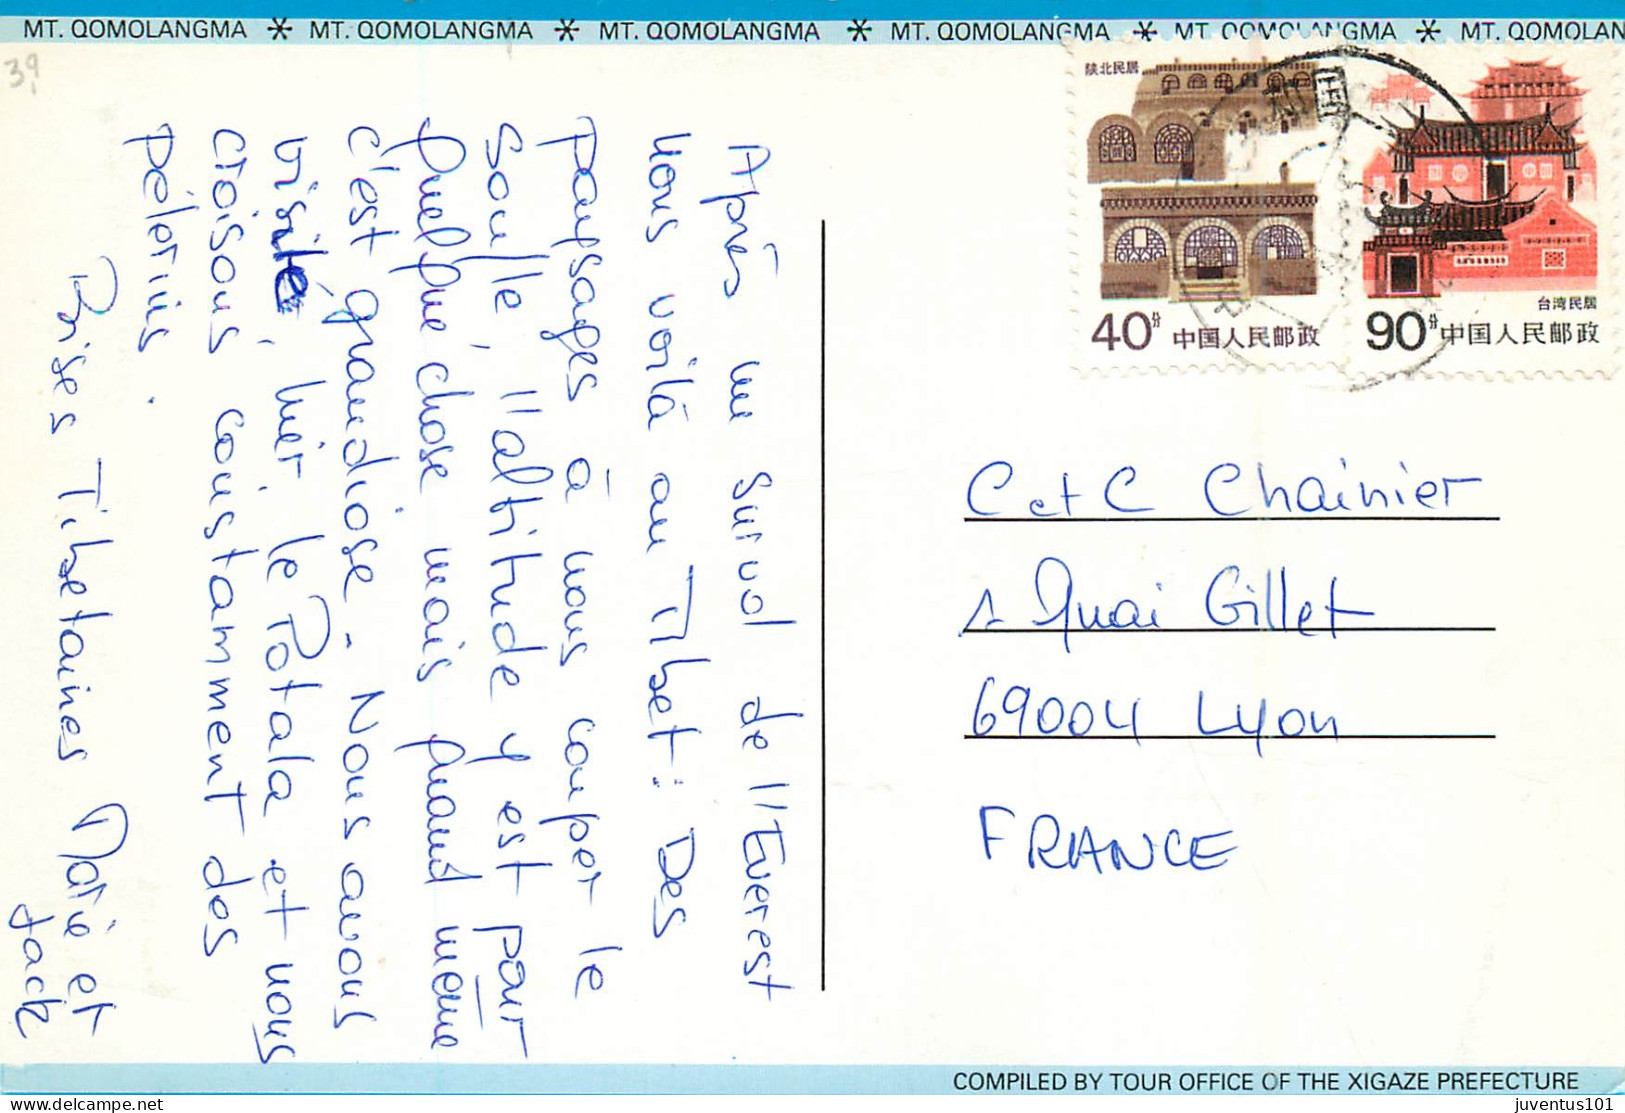 MT. QOMOLANGMA * MT. QOMOLANGMA * MT. QOMOLANGMA * MT. QOMOLANGMA * MT. QOMOLANGMA * MT. QOMOLAN
39
陕北民居
40分 中国人民邮政
台湾民居
90分 中国人民邮政
Après un survol de l'Everest
nous voilà au Tibet : Des
paysages à nous couper le
souffle, l'altitude y est pour
quelque chose mais quand même
c'est grandiose. Nous avons
visité, hier, le Potala et nous
croisons constamment des
pélerins.
Bises Tibetaines Marie et
Jack
C et C Chainier
1 Quai Gillet
69004 Lyon
FRANCE
COMPILED BY TOUR OFFICE OF THE XIGAZE PREFECTURE
delcampe.net
juventus101